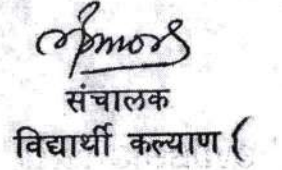 संचालक
विद्यार्थी कल्याण (